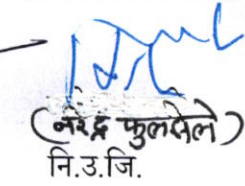 (नरेंद्र फुलझेले)
नि.उ.जि.